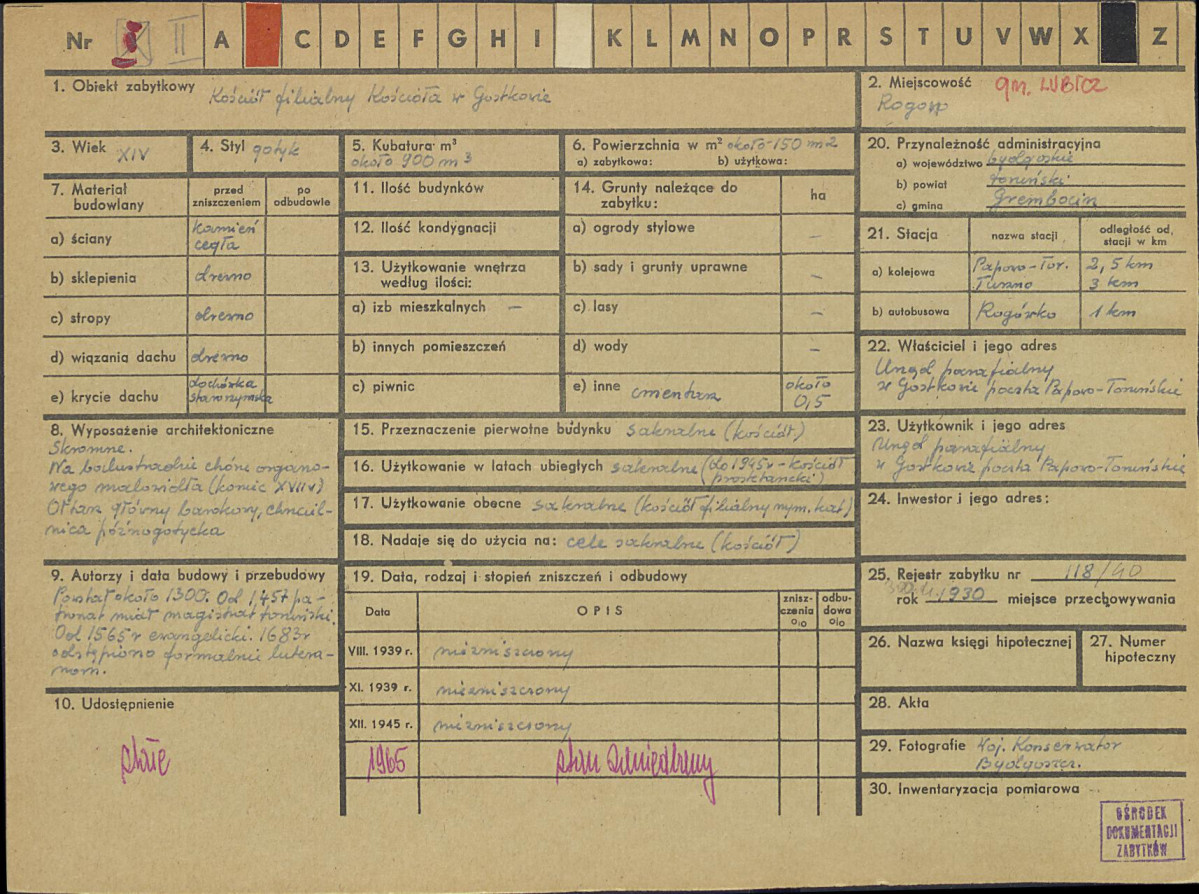 Nr II A C D E F G H I K L M N O P R S T U V W X Z
1. Obiekt zabytkowy Kościół filialny Kościoła w Gostkowie
2. Miejscowość gm. LUBICZ
Rogowo
3. Wiek XIV
4. Styl gotyk
5. Kubatura m³
około 900 m³
6. Powierzchnia w m² około 150 m2
a) zabytkowa: b) użytkowa:
7. Materiał budowlany
przed zniszczeniem
po odbudowie
a) ściany kamień
cegła
b) sklepienia drewno
c) stropy drewno
d) wiązania dachu drewno
e) krycie dachu dachówka
8. Wyposażenie architektoniczne
Skromne.
Na balustradzie chóru organo-
wego malowidła (koniec XVII w)
Ołtarz główny barokowy, chrzciel-
nica późnogotycka
9. Autorzy i data budowy i przebudowy
Powstał około 1300. Od 1457 pa-
tronat miał magistrat toruński.
Od 1565 r ewangelicki. 1683 r
odstąpiono formalnie lutera-
nom.
10. Udostępnienie
stałe
11. Ilość budynków
12. Ilość kondygnacji
13. Użytkowanie wnętrza
według ilości:
a) izb mieszkalnych —
b) innych pomieszczeń
c) piwnic
14. Grunty należące do
zabytku:
ha
a) ogrody stylowe —
b) sady i grunty uprawne —
c) lasy —
d) wody —
e) inne cmentarz około
0,5
15. Przeznaczenie pierwotne budynku sakralne (kościół.)
16. Użytkowanie w latach ubiegłych sakralne (do 1945 r – kościół
17. Użytkowanie obecne sakralne (kościół filialny rzym. kat)
18. Nadaje się do użycia na: cele sakralne (kościół)
19. Data, rodzaj i stopień zniszczeń i odbudowy
Data
OPIS
znisz-
czenia
o/o
odbu-
dowa
o/o
VIII. 1939 r. niezniszczony
XI. 1939 r. niezniszczony
XII. 1945 r. niezniszczony
1965 stan
20. Przynależność administracyjna
a) województwo bydgoskie
b) powiat toruński
c) gmina Grembocin
21. Stacja
nazwa stacji
odległość od.
stacji w km
a) kolejowa Papowo-Tor. 2,5 km
Turzno 3 km
b) autobusowa Rogówko 1 km
22. Właściciel i jego adres
Urząd parafialny
w Gostkowie poczta Papowo-Toruńskie
23. Użytkownik i jego adres
Urząd parafialny
w Gostkowie poczta Papowo-Toruńskie
24. Inwestor i jego adres:
25. Rejestr zabytku nr 118/40
rok 1930 miejsce przechowywania
26. Nazwa księgi hipotecznej
27. Numer
hipoteczny
28. Akta
29. Fotografie Woj. Konserwator
Bydgoszcz.
30. Inwentaryzacja pomiarowa
OŚRODEK
DOKUMENTACJI
ZABYTKÓW